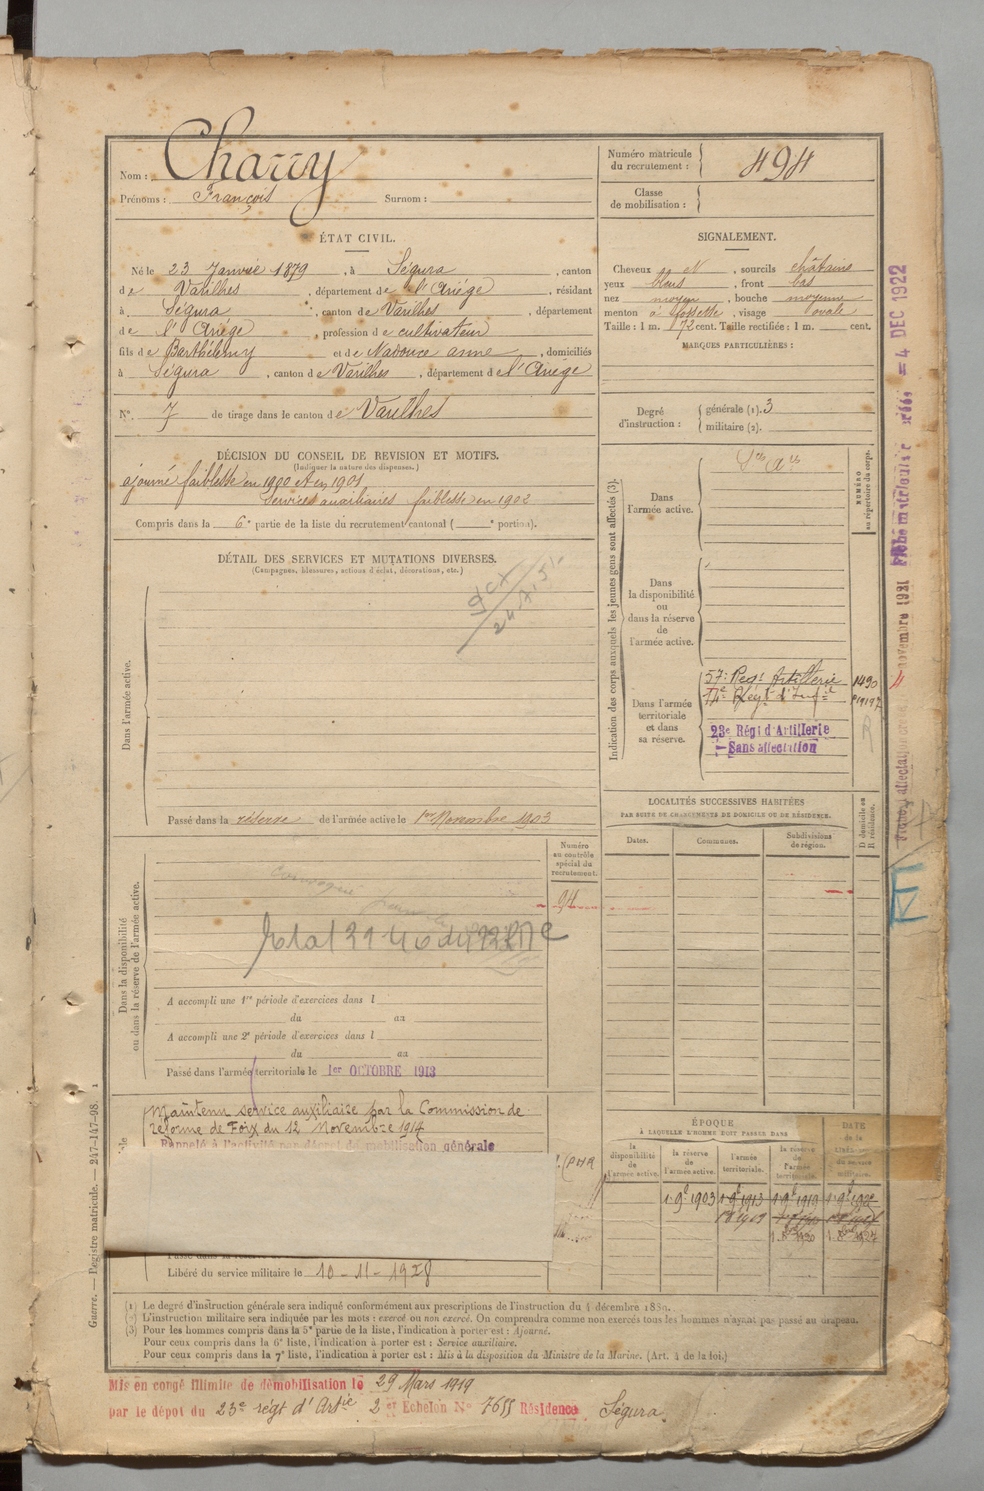 Nom : Charry
Prénoms : François Surnom :
Numéro matricule
du recrutement : 494
Classe
de mobilisation :
ÉTAT CIVIL.
Né le 23 Janvier 1879, à Ségura, canton
de Varilhes, département de l'Ariége, résidant
à Ségura, canton de Varilhes, département
de l'Ariége, profession de cultivateur
fils de Barthélemy et de Nadouce anne, domiciliés
à Ségura, canton de Varilhes, département de l'Ariége
N° 7 de tirage dans le canton de Varilhes
SIGNALEMENT.
Cheveux et N, sourcils châtains
yeux bleus, front bas
nez moyen, bouche moyenne
menton à fossette, visage ovale
Taille : 1 m. 72 cent. Taille rectifiée : 1 m. cent.
MARQUES PARTICULIÈRES :
Degré
d'instruction :
générale (1). 3
militaire (2).
DÉCISION DU CONSEIL DE REVISION ET MOTIFS.
(Indiquer la nature des dispenses.)
ajourné faiblesse en 1900 et en 1901
Services auxiliaires faiblesse en 1902
Compris dans la 6e partie de la liste du recrutement cantonal ( e portion).
DÉTAIL DES SERVICES ET MUTATIONS DIVERSES.
(Campagnes, blessures, actions d'éclat, décorations, etc.)
Dans l'armée active.
Passé dans la réserve de l'armée active le 1er Novembre 1903
Indication des corps auxquels les jeunes gens sont affectés (3).
Dans
l'armée active.
Dans
la disponibilité
ou
dans la réserve
de
l'armée active.
Dans l'armée
territoriale
et dans
sa réserve.
57e Regt Artillerie
23e Régt d'Artillerie
Sans affectation
NUMÉRO
au répertoire du corps.
1490
LOCALITÉS SUCCESSIVES HABITÉES
PAR SUITE DE CHANGEMENTS DE DOMICILE OU DE RÉSIDENCE.
Dates.
Communes.
Subdivisions
de région.
D domicile ou
R résidence.
Dans la disponibilité
ou dans la réserve de l'armée active.
Numéro
au contrôle
spécial du
recrutement.
94
A accompli une 1re période d'exercices dans l
du au
A accompli une 2e période d'exercices dans l
du au
Passé dans l'armée territoriale le 1er OCTOBRE 1913
Maintenu service auxiliaire par la Commission de
réforme de Foix du 12 Novembre 1914
Rappelé à l'activité par décret de mobilisation générale
Libéré du service militaire le 10-11-1928
ÉPOQUE
À LAQUELLE L'HOMME DOIT PASSER DANS
la
disponibilité
de
l'armée active.
la réserve
de
l'armée active.
l'armée
territoriale.
la réserve
de
l'armée
territoriale.
DATE
de la
libération
du service
militaire.
1 9e 1903
(1) Le degré d'instruction générale sera indiqué conformément aux prescriptions de l'instruction du 4 décembre 1889.
(2) L'instruction militaire sera indiquée par les mots : exercé ou non exercé. On comprendra comme non exercés tous les hommes n'ayant pas passé au drapeau.
(3) Pour les hommes compris dans la 5e partie de la liste, l'indication à porter est : Ajourné.
Pour ceux compris dans la 6e liste, l'indication à porter est : Service auxiliaire.
Pour ceux compris dans la 7e liste, l'indication à porter est : Mis à la disposition du Ministre de la Marine. (Art. 4 de la loi.)
Guerre. — Registre matricule. — 247-147-98.
Mis en congé illimité de démobilisation le 29 Mars 1919
par le dépot du 23e régt d'Artie 2 Echelon N° 7655 Résidence Ségura
novembre 1921
4 DEC 1922